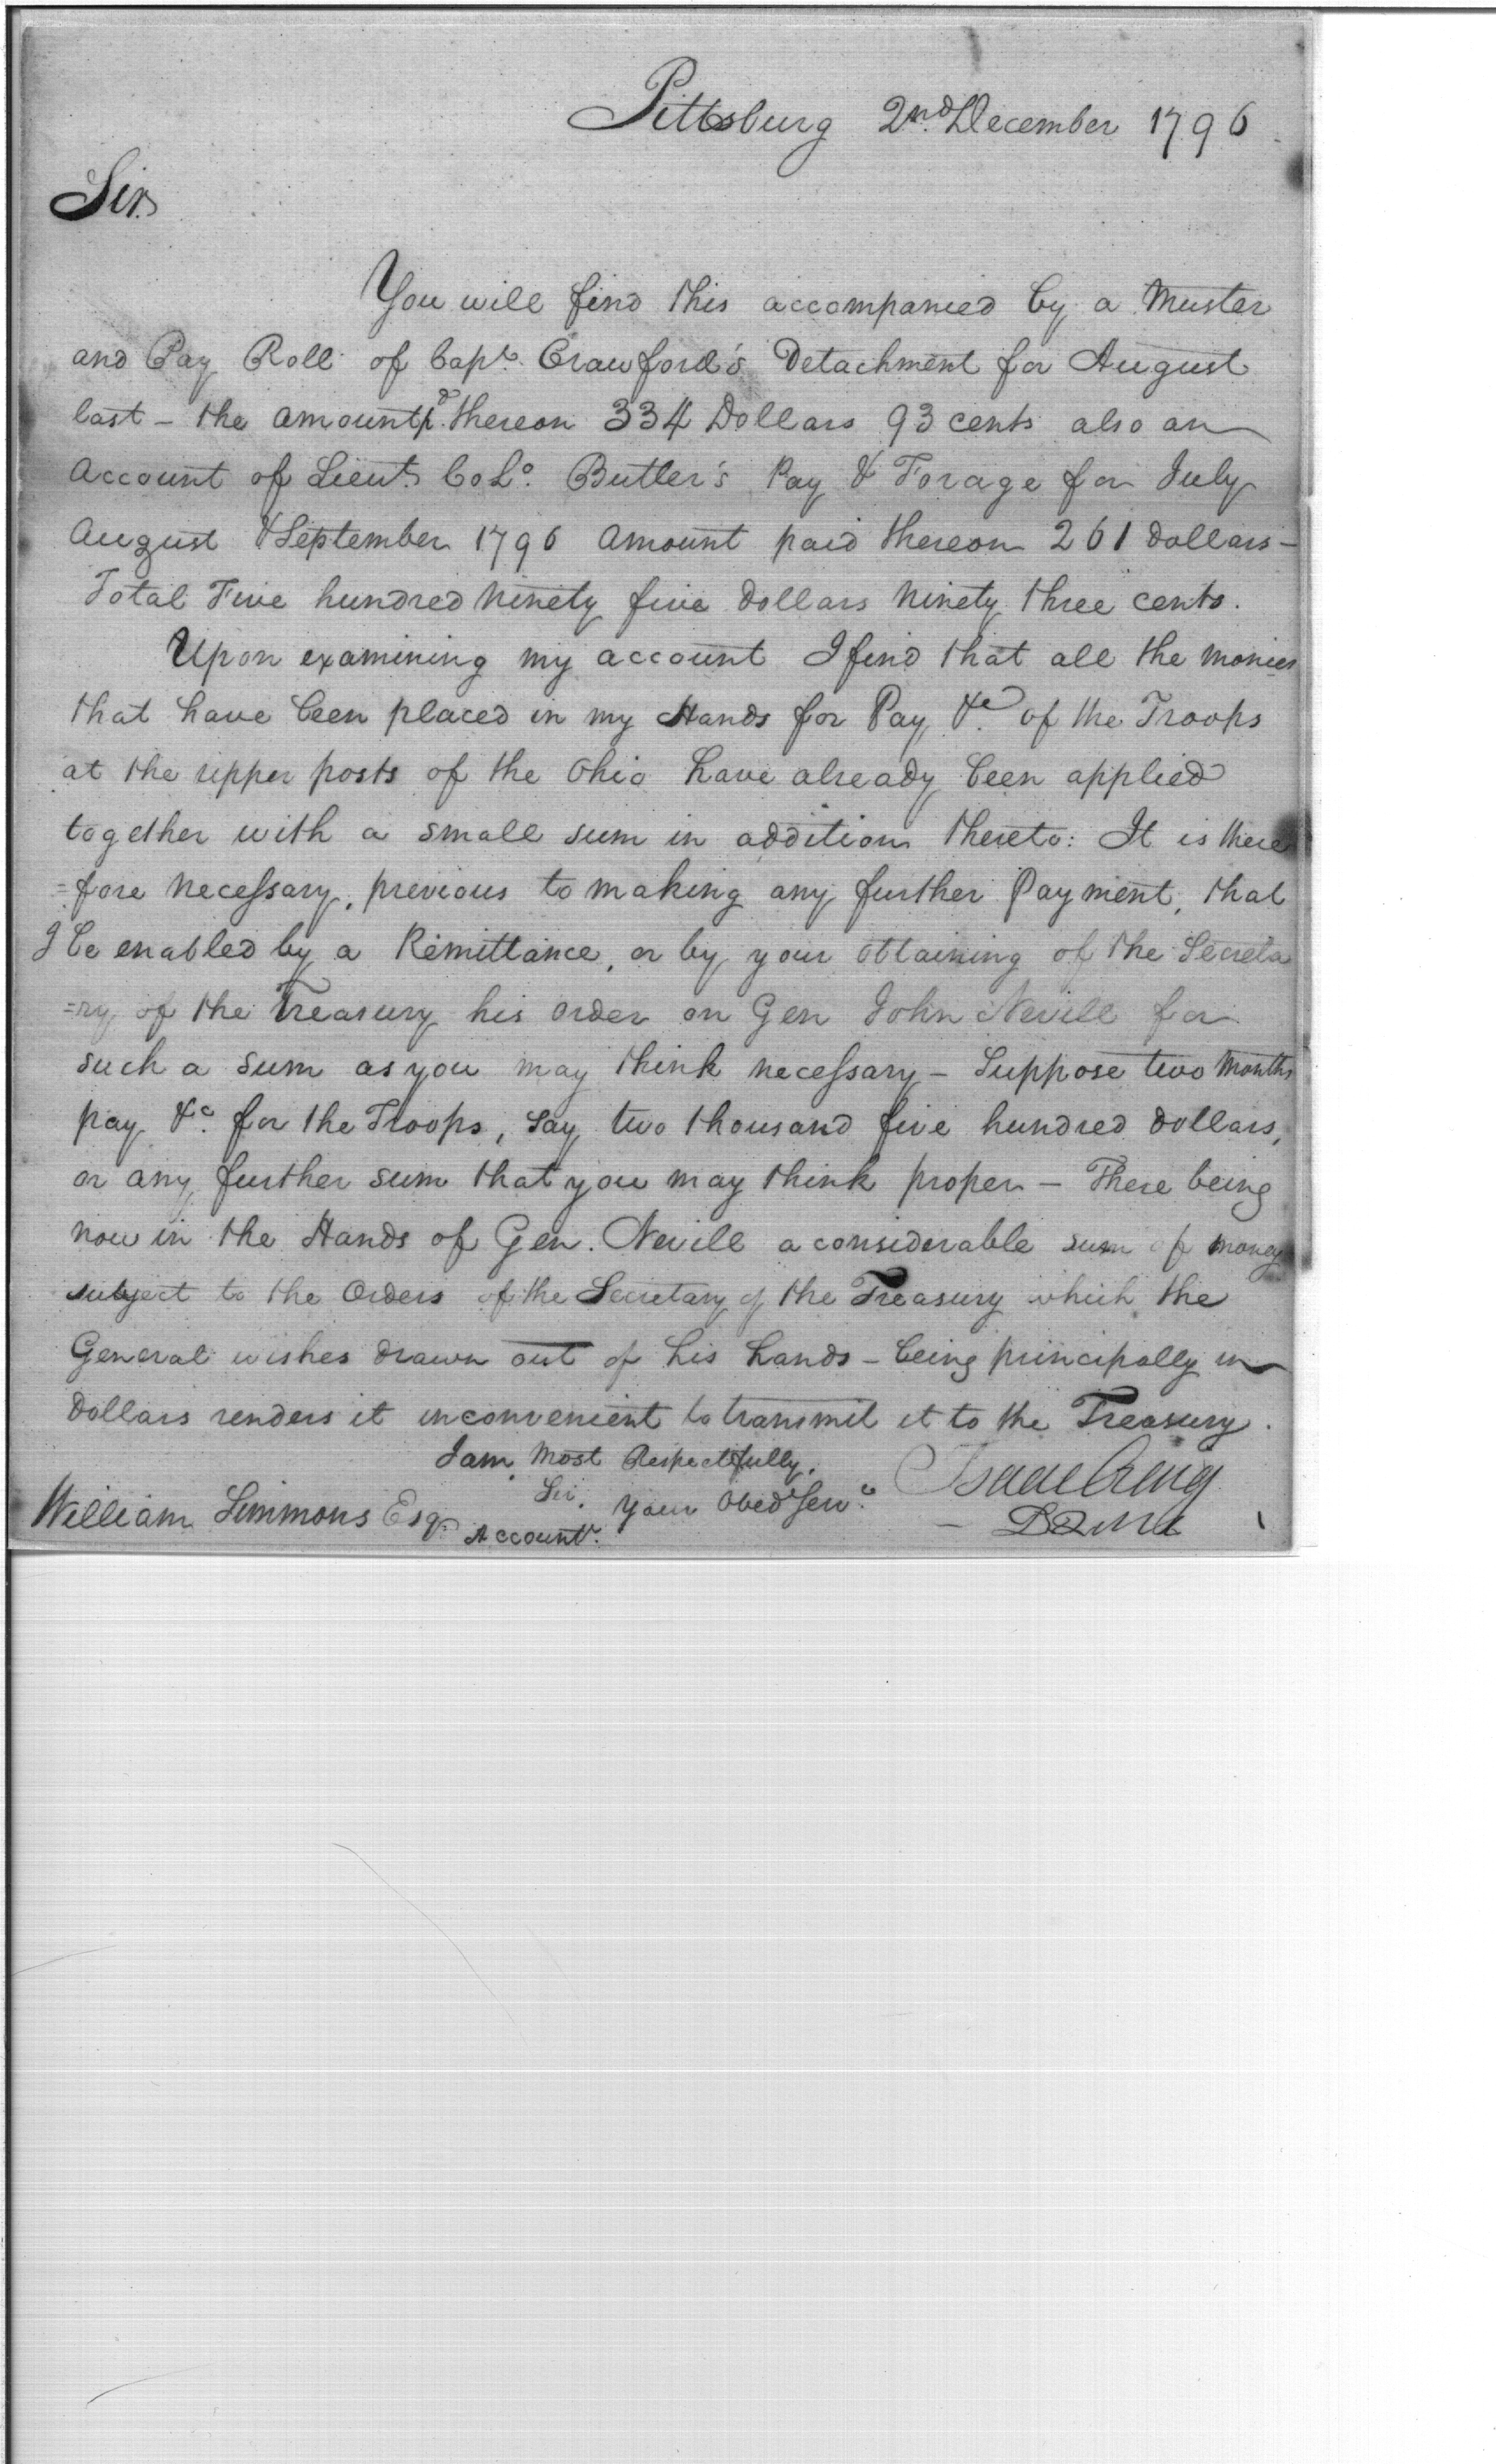 Pittsburg 2nd December 1796
Sir
You will find this accompanied by a Muster
and Pay Roll of Capt. Crawford's Detachment for August
last – the amount pd. thereon 334 Dollars 93 cents also an
account of Lieut. Colo. Butler's Pay & Forage for July
August & September 1796 amount paid thereon 261 dollars –
Total Five hundred Ninety five dollars Ninety three cents.
Upon examining my account I find that all the monies
that have been placed in my Hands for Pay &c. of the Troops
at the upper posts of the Ohio have already been applied
together with a small sum in addition thereto: It is there
=fore necessary, previous to making any further Payment, that
I be enabled by a Remittance, or by your obtaining of the Secreta
=ry of the Treasury his order on Gen John Nevill for
such a sum as you may think necessary – Suppose two Months
pay &c. for the Troops, say two thousand five hundred dollars,
or any further sum that you may think proper – There being
now in the Hands of Gen. Nevill a considerable sum of money
subject to the Orders of the Secretary of the Treasury which the
General wishes drawn out of his hands – being principally in
Dollars renders it inconvenient to transmit it to the Treasury.
I am most Respectfully,
Sir, your Obed Serv.t Isaac Craig
William Simmons Esqr. Accountt. – DQMG